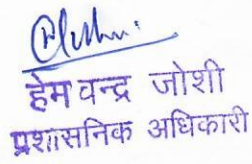 हेम चन्द्र जोशी
प्रशासनिक अधिकारी